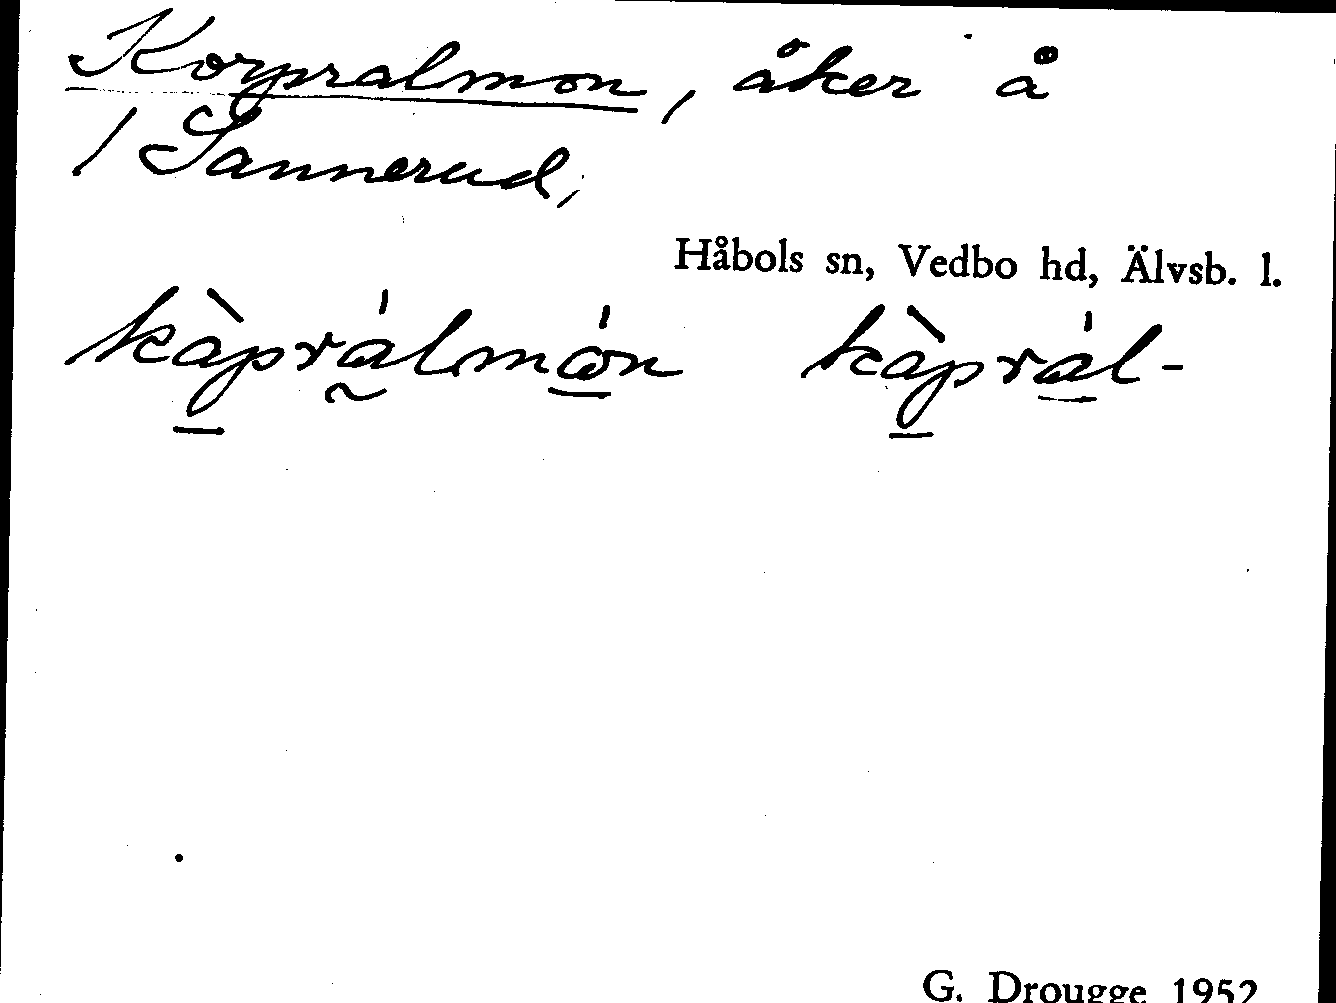 Korpralmon, åker å
/ Sannerud,
Håbols sn, Vedbo hd, Älvsb. l.
kàprálmón kàprál-
G. Drougge 1952